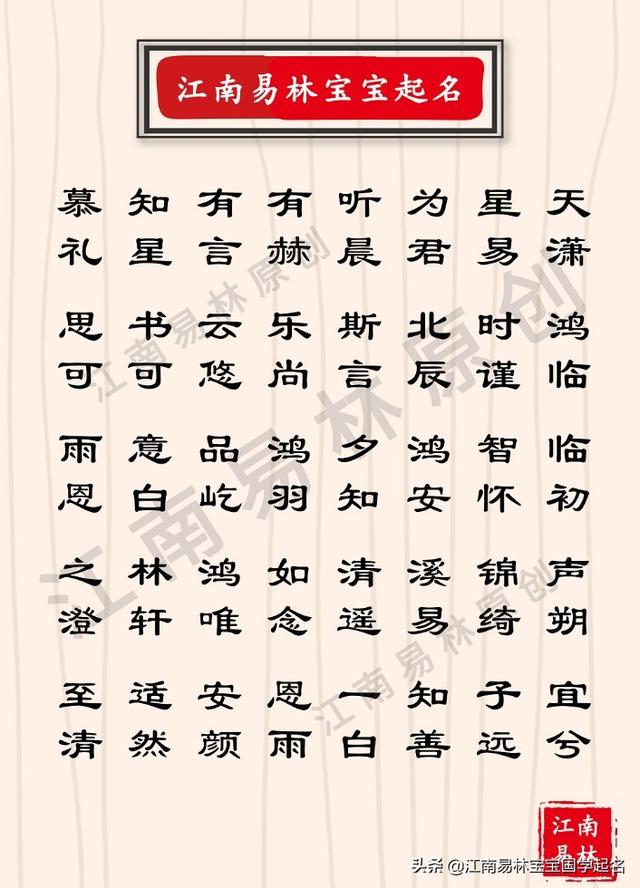 江南易林宝宝起名
慕 知 有 有 听 为 星 天
礼 星 言 赫 晨 君 易 潇
思 书 云 乐 斯 北 时 鸿
可 可 悠 尚 言 辰 谨 临
雨 意 品 鸿 夕 鸿 智 临
恩 白 屹 羽 知 安 怀 初
之 林 鸿 如 清 溪 锦 声
澄 轩 唯 念 遥 易 绮 朔
至 适 安 恩 一 知 子 宜
清 然 颜 雨 白 善 远 兮
江南易林原创
江南易林原创
江南易林原创
江南
易林
头条 @江南易林宝宝国学起名